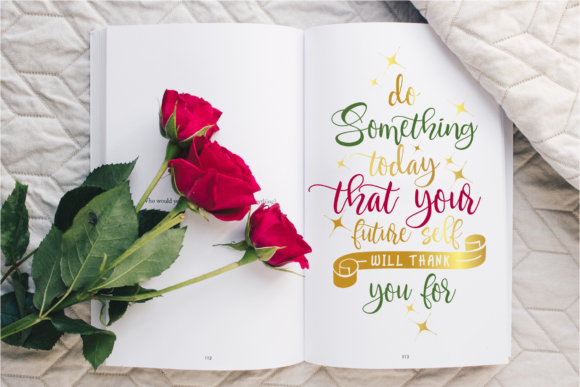 She would
112
do
Something
today
that your
future self
WILL THANK
you for
113